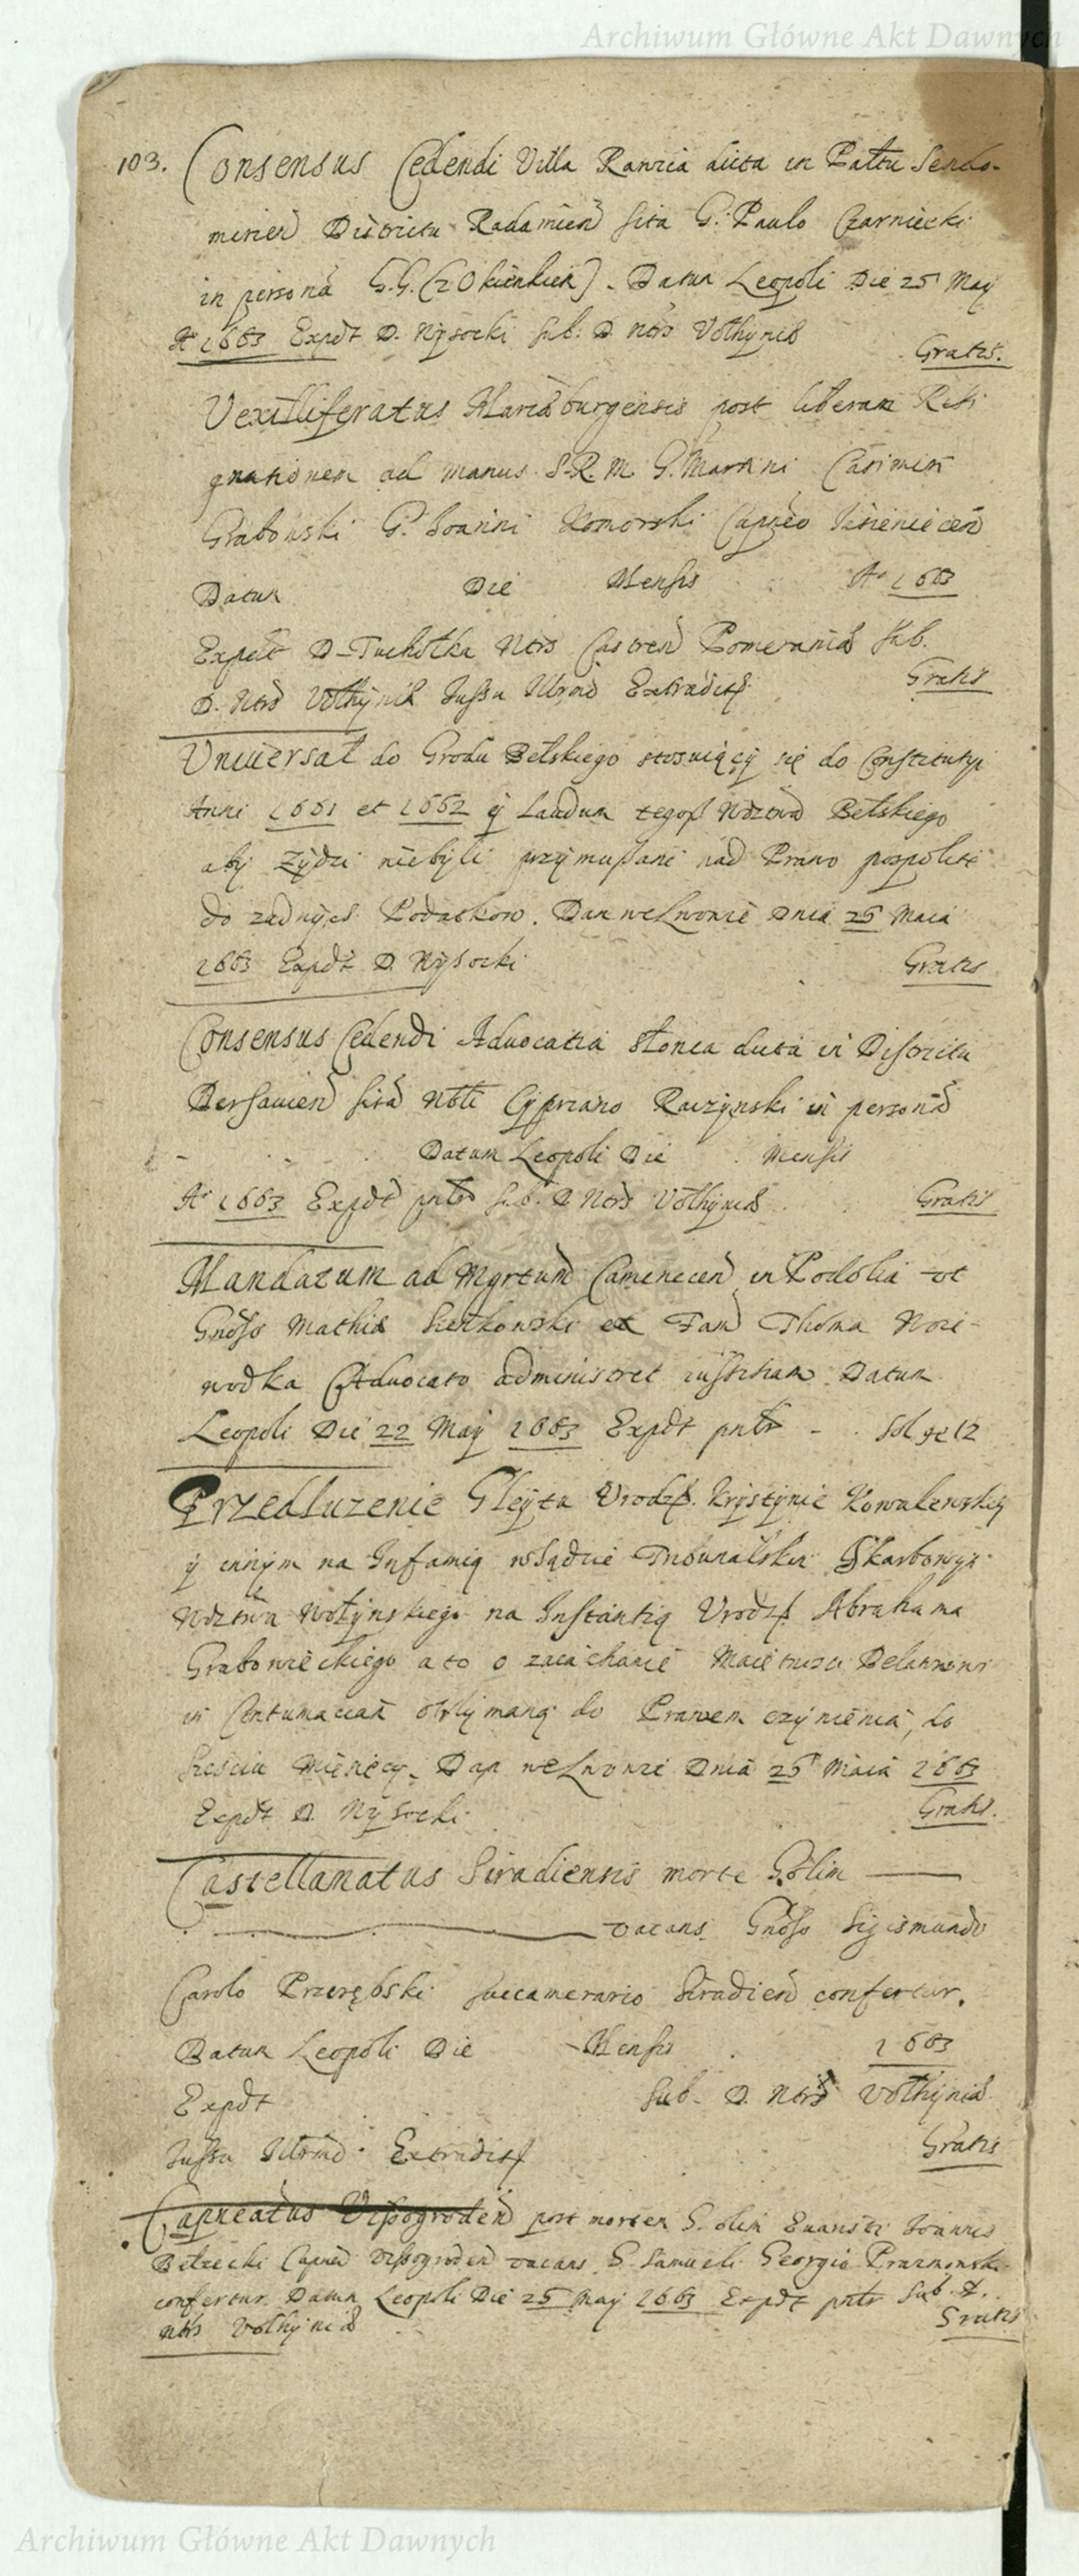 Archiwum Główne Akt Dawnych
103. Consensus Cedendi Villa Ranzia dicta in Pałtu Sendo-
mirien Districtu Radomien sita G. Paulo Czarniecki
in persona G.G. (z Okienkiek). Datum Leopoli Die 25 May
Ao 1663 Expdt D. Wysocki sub. D. Ntrs Volhynia
Gratis.
Vexilliferatus Mariaburgensis post liberam Resi
gnationem ad manus S.R.M. G. Martini Casimiri
Grabowski G. Joanni Komorski Capneo
Datum Die Mensis Ao 1663
Expdt D. Tucholka Ntrs Castren Pomerania sub.
D. Ntrs Volhynia Jussu Illrmo Extradits
Gratis
Vniuersał do Grodu Bełskiego stosuiący się do Constitutyi
Anni 1661 et 1662 ÿ Laudum tegoß Wdztwa Bełskiego
aby Zydzi niebyli przymußani nad Prawo pospolite
do zadnych Podatkow. Dan we Lwowie Dnia 25 Maia
1663 Expdt D. Wysocki
Gratis
Consensus Cedendi Aduocatia Słonca dicta in Districtu
sita Nbli Cypriano Raczynski in persona
Datum Leopoli Die Mensis
Ao 1663 Expdt pntr sub. D. Ntrs Volhynia
Gratis
Mandatum ad Mgrtum Camenecen in Podolia vt
Gnoso Mathia et Fam Thoma Woie-
wodka Aduocato administret iustitiam Datum
Leopoli Die 22 May 1663 Expdt pntr - Sol gr 12
Przedluzenie Gleytu Vrodz. Krystynie Kowalewskiey
ÿ innym na Infamią w Sądzie Tribunalskim Skarbowym
Wdztwa Wołynskiego na Instantią Vrodz. Abrahama
Grabowieckiego a to o zaiachanie Maiętnosci
in Contumaciam otrzymaną do Prawem czynienia, do
sześciu Miesięcy. Dan we Lwowie Dnia 25 Maia 1663
Expdt D. Wysocki
Gratis.
Castellanatus Siradiensis morte G. olim
vacans Gnoso Sigismundo
Carolo Przerębski Succamerario Siradien confertur.
Datum Leopoli Die Mensis 1663
Expdt Sub. D. Ntrs Volhynia
Jussu Illrmo Extradits
Gratis
Capneatus Vißogroden post mortem G. olim Euaristi Joannis
Bełzecki Capnei Vißogroden vacans G. Samueli Georgio Prazmowski
confertur Datum Leopoli Die 25 May 1663 Expdt pntr Sub. D.
Ntrs Volhynia
Gratis
Archiwum Główne Akt Dawnych